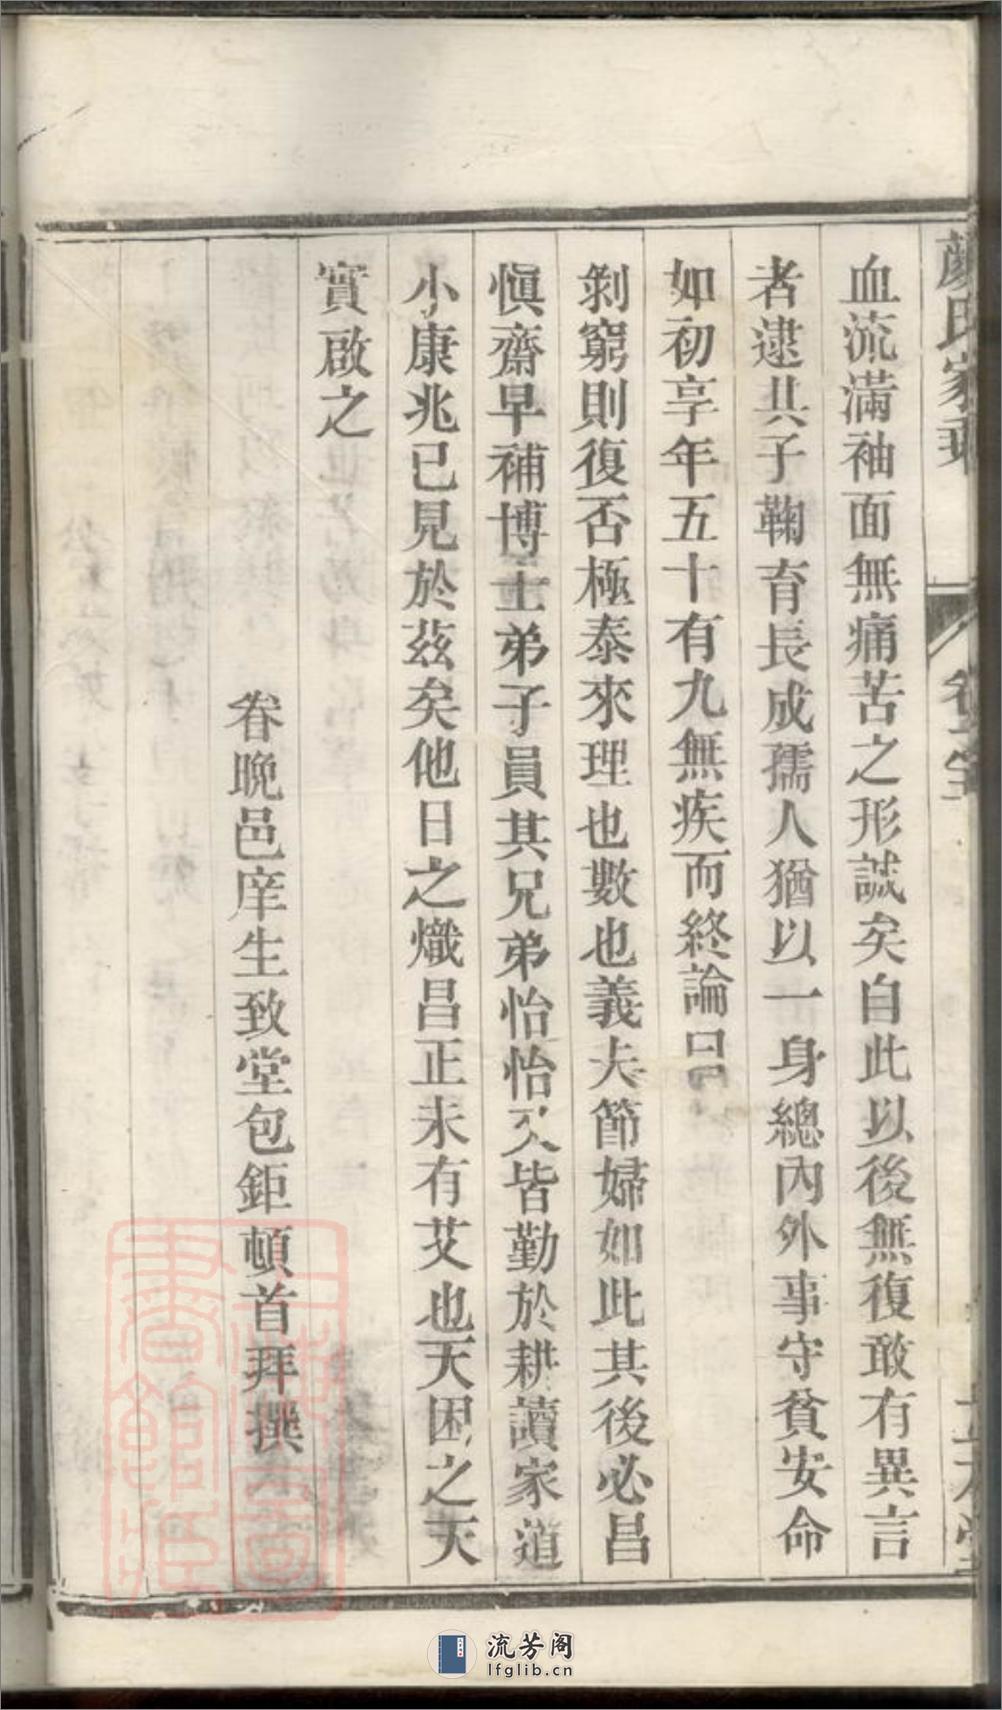 顏氏家乘
血流滿袖面無痛苦之形誠矣自此以後無復敢有異言
者逮其子鞠育長成孺人猶以一身總內外事守貧安命
如初享年五十有九無疾而終論曰
剝窮則復否極泰來理也數也義夫節婦如此其後必昌
愼齋早補博士弟子員其兄弟怡怡又皆勤於耕讀家道
小康兆已見於茲矣他日之熾昌正未有艾也天困之天
實啟之
眷晩邑庠生致堂包鉅頓首拜撰
上海圖書館藏
流芳阁
lfglib.cn